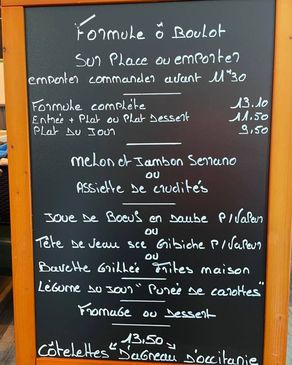 Formule ô Boulot
Sur Place ou emporter
emporter commander avant 11H30
Formule complète 13.10
Entrée + Plat ou Plat Dessert 11.50
Plat du Jour 9,50
Melon et Jambon Serrano
ou
Assiette de crudités
Joue de Boeuf en daube P/Vapeur
ou
Tête de Veau sce Gribiche P/Vapeur
ou
Bavette Grillée Frites maison
Légume du Jour "Purée de carottes"
Fromage ou Dessert
13,50
Côtelettes D'agneau D'occitanie